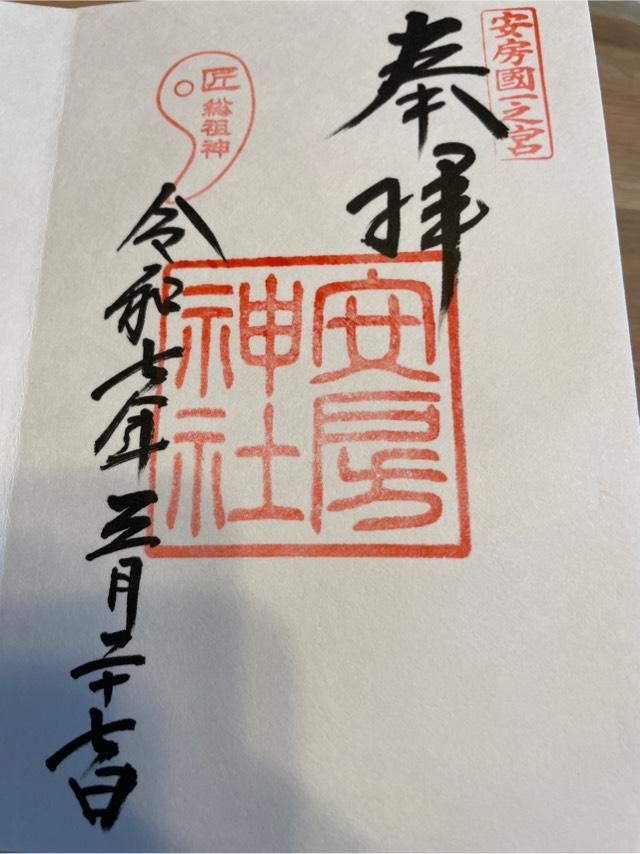 安房國一之宮
奉拝
安房
神社
匠
総祖神
令和七年三月二十七日